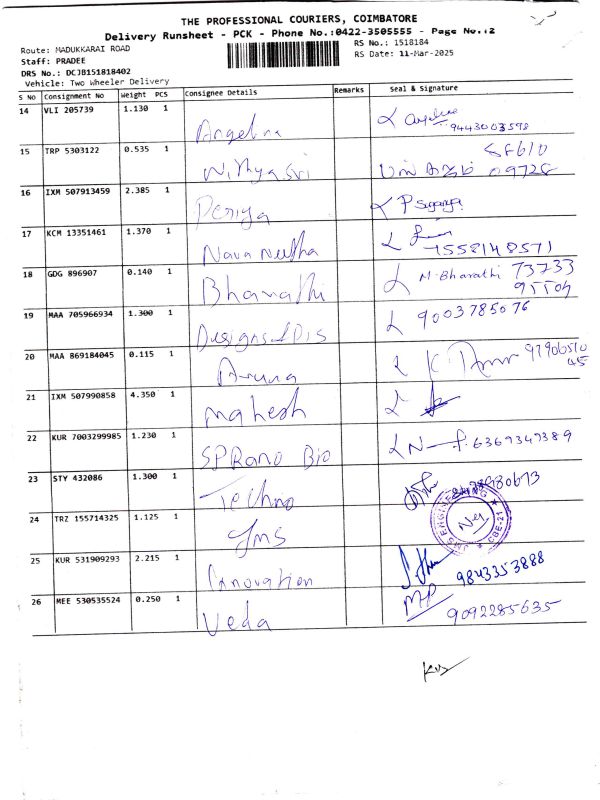 THE PROFESSIONAL COURIERS, COIMBATORE
Delivery Runsheet - PCK - Phone No.:0422-3505555 - Page No.:2
Route: MADUKKARAI ROAD
RS No.: 1518184
Staff: PRADEE
RS Date: 11-Mar-2025
DRS No.: DCJB151818402
Vehicle: Two Wheeler Delivery
S No Consignment No Weight PCS Consignee Details Remarks Seal & Signature
14 VLI 205739 1.130 1 Angelina
9443003598
15 TRP 5303122 0.535 1 Nithyasri
09728
16 IXM 507913459 2.385 1 Periya
17 KCM 13351461 1.370 1 Nava Neetha
7558148571
18 GDG 896907 0.140 1 Bharathi M. Bharathi 73733
19 MAA 705966934 1.300 1 9003785076
20 MAA 869184045 0.115 1 Aruna
21 IXM 507990858 4.350 1 Mahesh
22 KUR 7003299985 1.230 1 SPRano Bio 6369347389
23 STY 432086 1.300 1 Techno
24 TRZ 155714325 1.125 1 Jms
ENGINEERING
CBE-21
25 KUR 531909293 2.215 1 Innovation 9843353888
26 MEE 530535524 0.250 1 Veda MP
9092285635